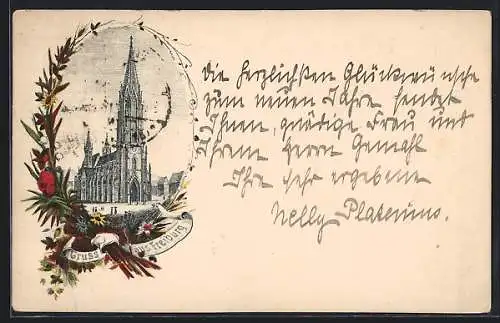 Die herzlichsten Glückwünsche
zum neuen Jahre sendet
Ihnen, gnädige Frau und
Ihrem Herrn Gemahl
Ihre sehr ergebene
Nelly
Gruss aus Freiburg